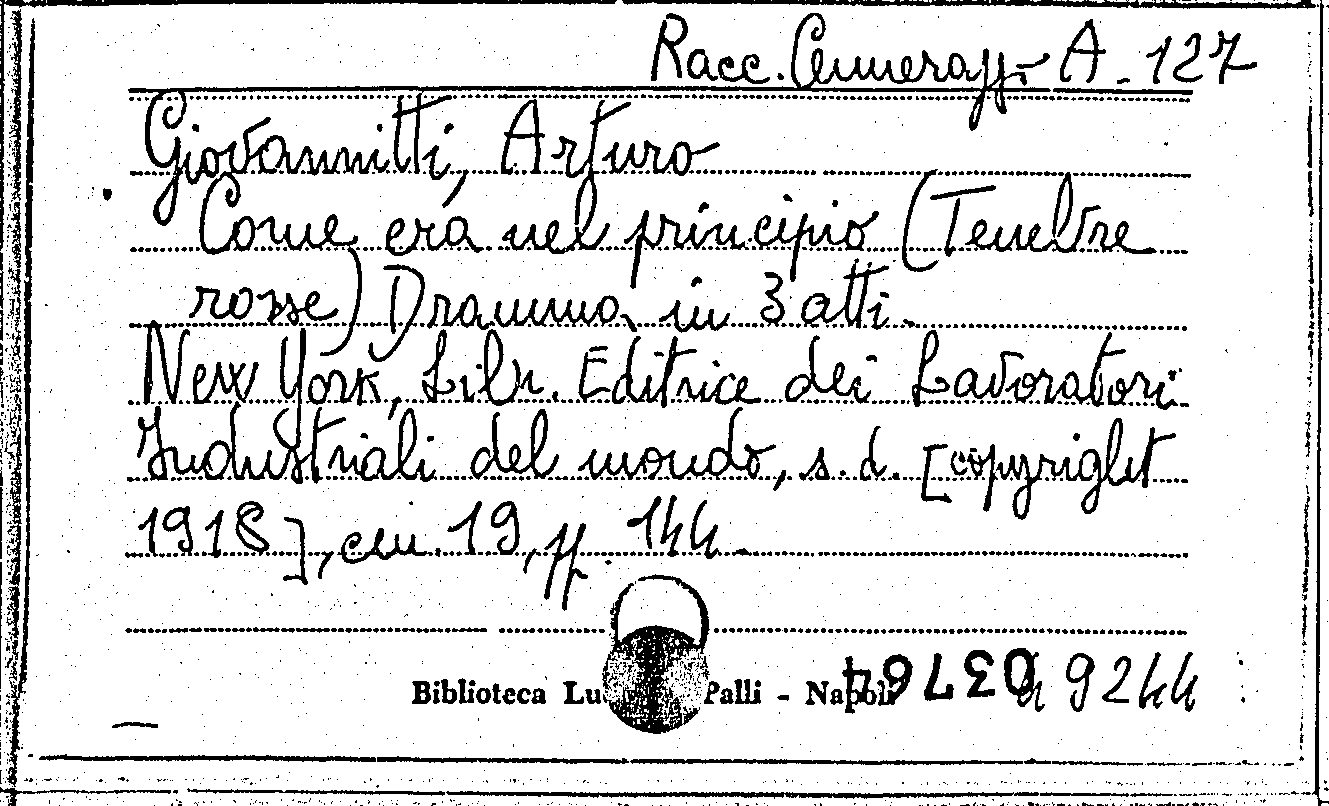 Racc. Cennerazz. A - 127
Giovannitti, Arturo
Come era nel principio (Tenebre
rosse) Dramma in 3 atti.
New York, Libr. Editrice dei Lavoratori
Industriali del mondo, s. d. [copyright
1918], cm. 19, pp. 144.
Biblioteca Lu Palli - Napoli 9244